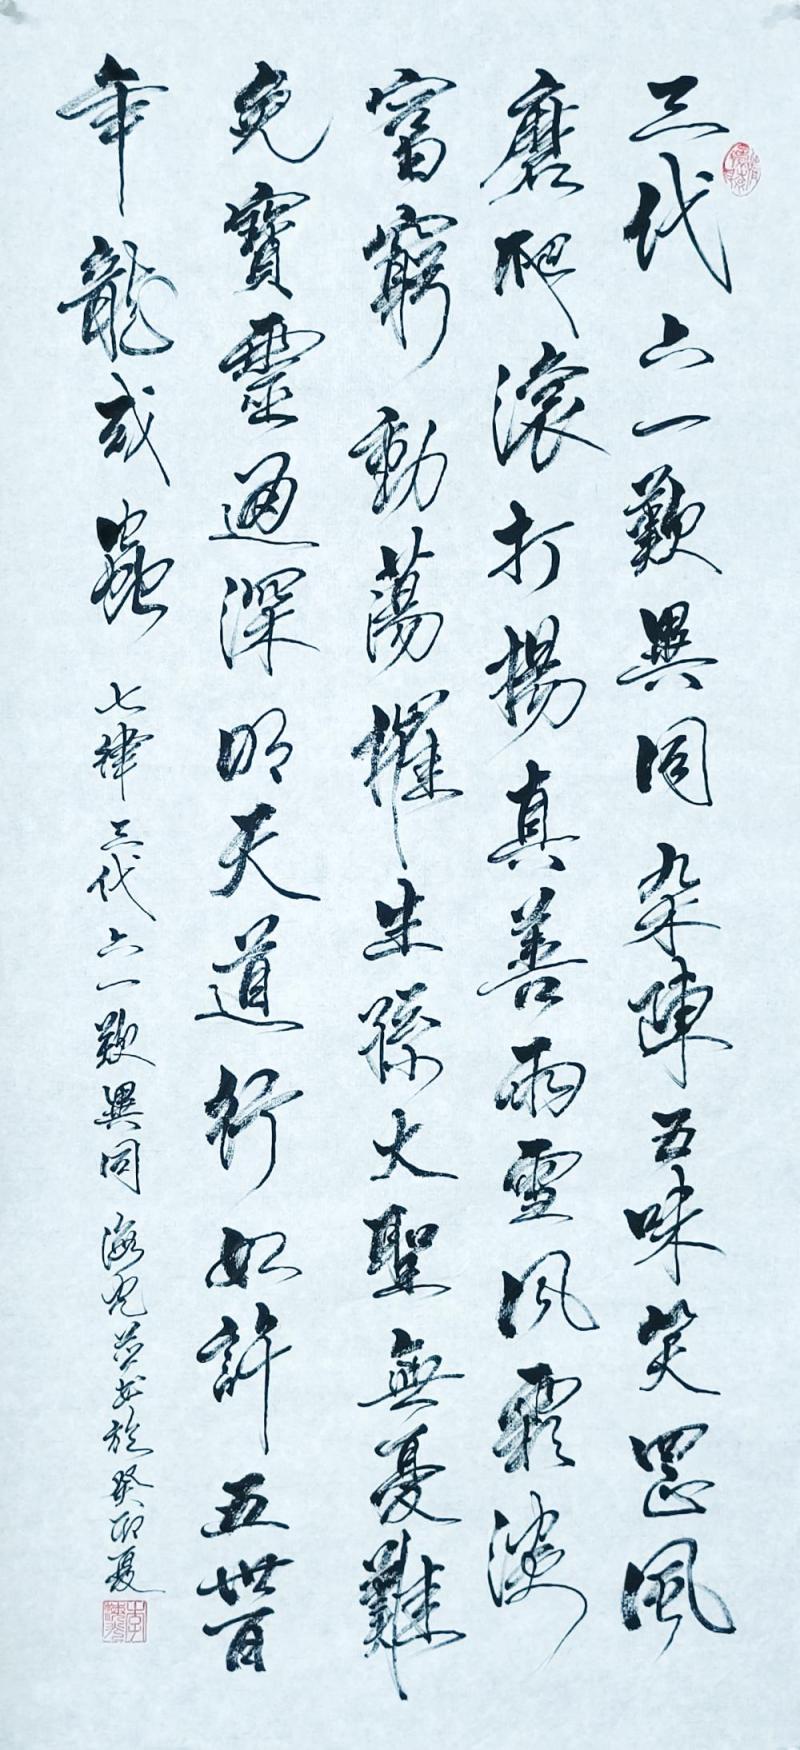 三代六一歎異同杂陣五味笑罡風
磨爬滾打揚真善雨雪風霜淡
富窮動蕩催生孫大聖無憂難
免寶靈通深明天道行如許五世百
年龍或蟲 七律 三代六一歎異同 海光並书於癸卯夏